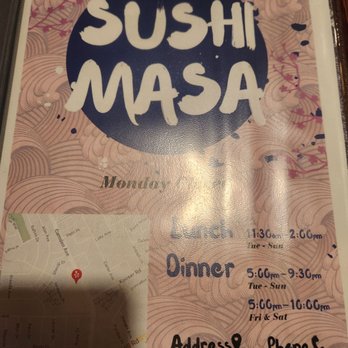 SUSHI
MASA
Monday
Lunch 11:30am-2:00pm
Tue - Sun
Dinner 5:00pm-9:30pm
Tue - Sun
5:00pm-10:00pm
Fri & Sat
Address Phone